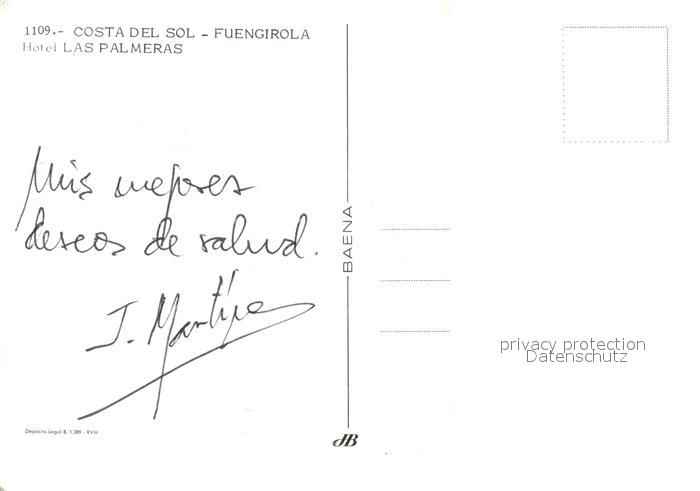 1109.- COSTA DEL SOL - FUENGIROLA
Hotel LAS PALMERAS
Mis mejores
deseos de salud.
J. Martínez
Depósito Legal B. 1.389 - XVIII
BAENA
JB
privacy protection
Datenschutz